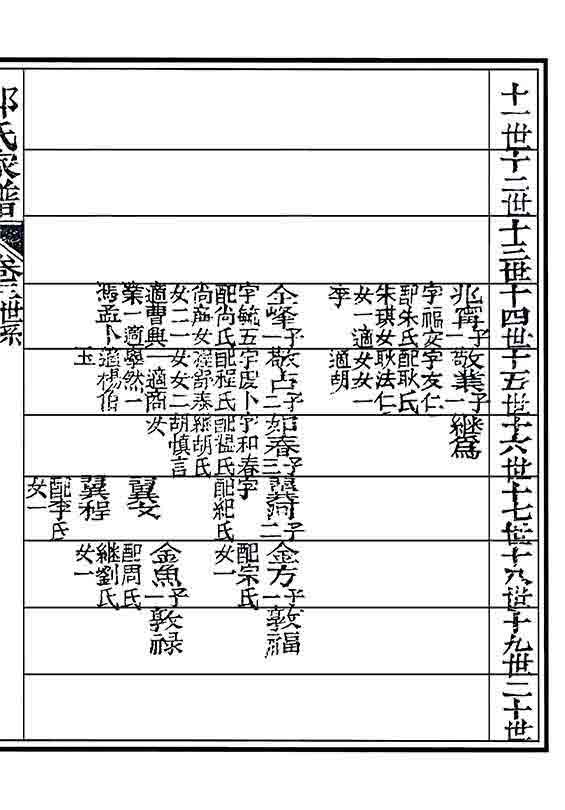 十一世
十二世
十三世
十四世
十五世
十六世
十七世
十八世
十九世
二十世
兆甯子一
字福安
配朱氏
朱琪女
女一適
李
敬業子一
字友仁
配耿氏
耿法仁
女女一
適胡
繼爲
金峰子一
字毓五
配尚氏
尚女
女二一
適曹興
業一適
馮孟卜
敬占子二
字虔卜
配程氏
程錫泰
女女二
一適商
學然一
適楊伯
玉
如春子三
字和春
配程氏
繼胡氏
胡慎言
女
翼河子二
字
配紀氏
翼文
翼程
配李氏
女一
金方子一
配宗氏
女一
金魚子一
配周氏
繼劉氏
女一
敦福
敦祿
氏家譜
卷三世系